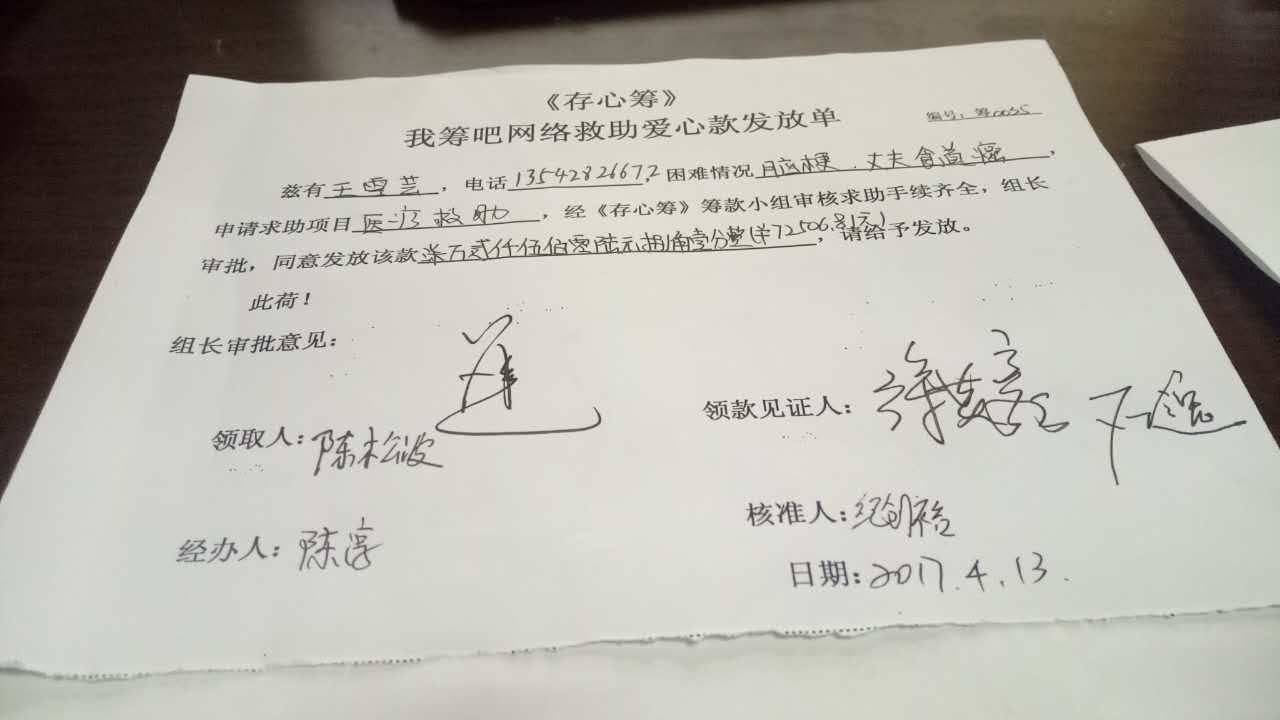 《存心筹》
我筹吧网络救助爱心款发放单
编号：筹0035
兹有王雪芸，电话13542826672，困难情况脑梗．丈夫食道癌，
申请求助项目医疗救助，经《存心筹》筹款小组审核求助手续齐全，组长
审批，同意发放该款柒万贰仟伍佰零陆元捌角壹分整(¥72506.81元)，请给予发放。
此荷！
组长审批意见：
领款见证人：
领取人：陈松波
核准人：
经办人：陈淳
日期：2017.4.13.